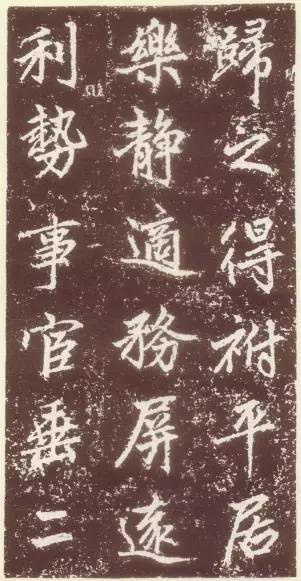 歸之得祔平居
樂静適務屏遠
利勢事宦垂二